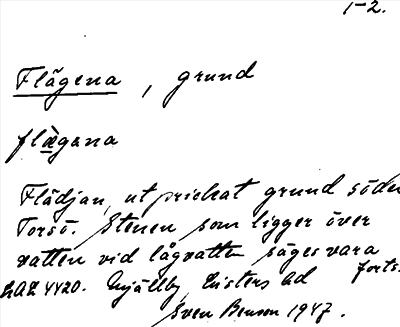 1-2.
Flägena, grund
flæ̀gəna
Flädjan, utprickat grund söder
Torsö. Stenen som ligger över
vatten vid lågvatten säges vara
forts.
LAL 4420. Mjällby, Listers hd
Sven Benson 1947.